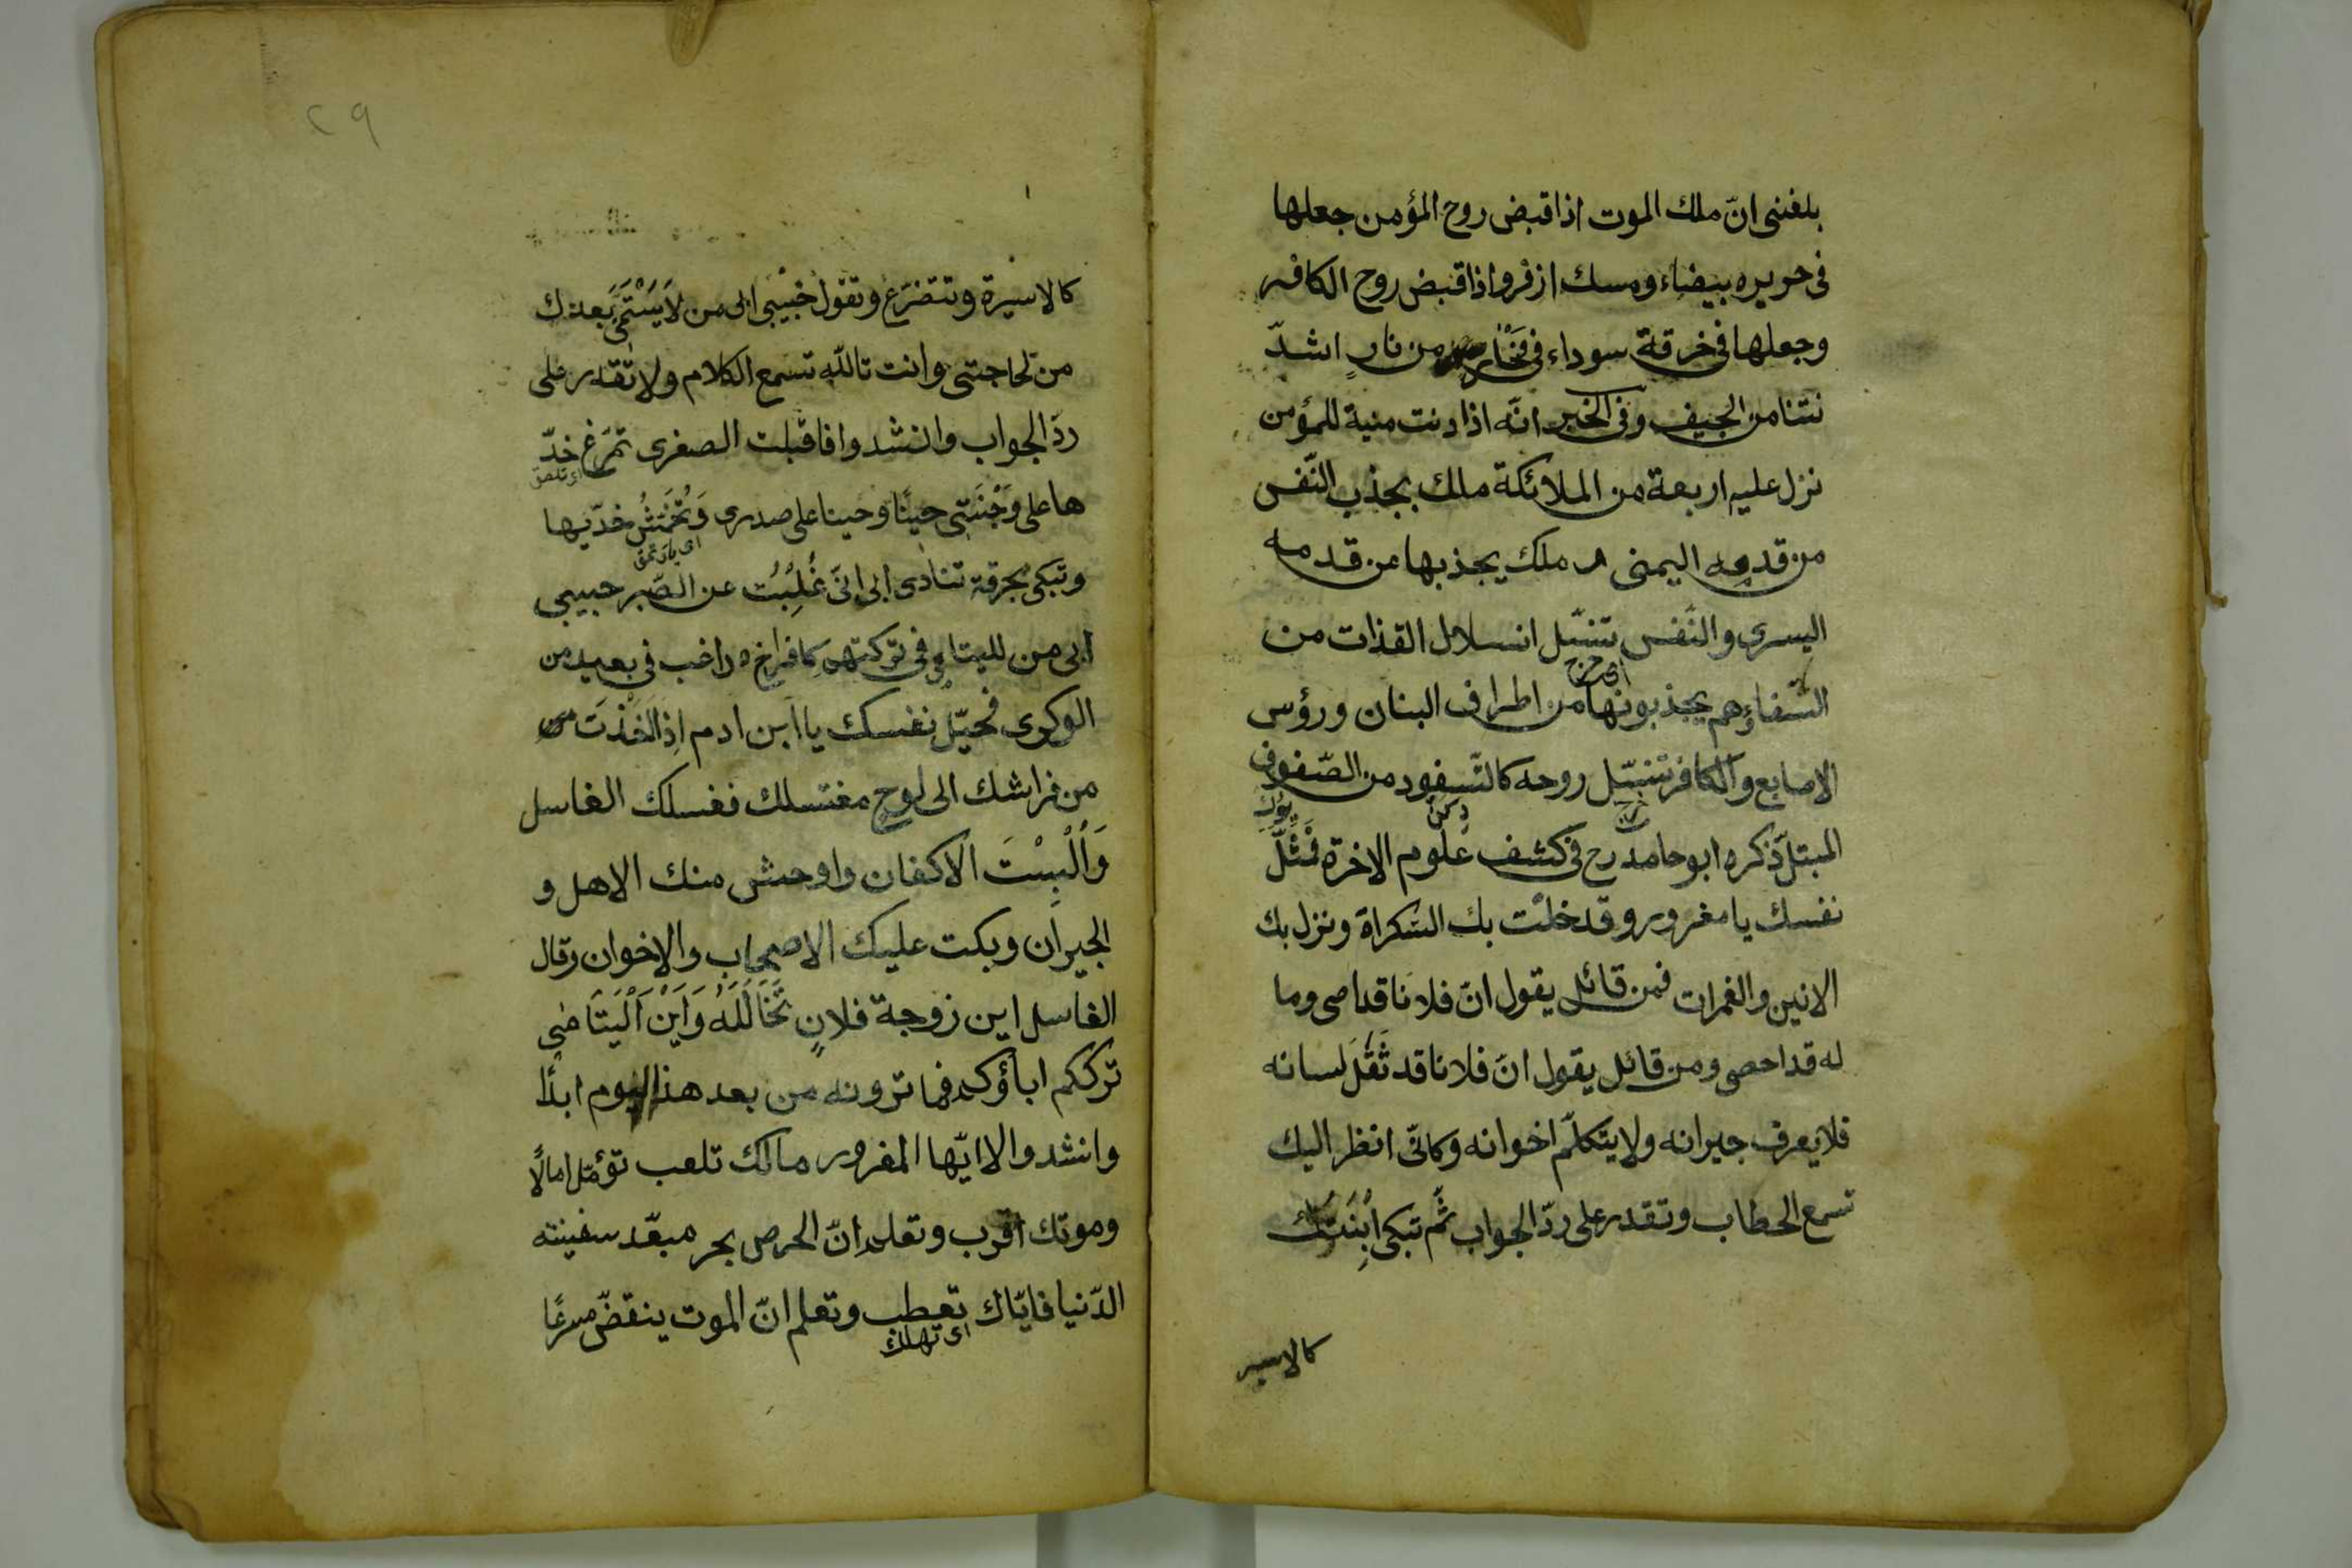 بلغنى انّ ملك الموت اذا قبض روح المؤمن جعلها
فى حريره بيضاء ومسك ازفر واذا قبض روح الكافر
وجعلها فى خرقة سوداء فى فَخْار من نارٍ اشدّ
نتنا من الجيف وفى الخبر انّه اذا دنت منية للمؤمن
نزل عليه اربعة من الملائكة ملك يجذب النّفس
من قدمه اليمنى ملك يجذبها من قدمه
اليسرى والنّفس تنسّل انسلال القذات من
اى خرج
السّفاؤهم يجذبونها من اطراف البنان ورؤس
الاصابع والكافر تنسّل روحه كالسّفود من الصّفوف
المبتلّ ذكره ابو حامد رح فى كشف علوم الاخرة فَمَثِّلْ
نفسك يا مغرور وقد خلّت بك السّكراة ونزل بك
الانين والغمرات فمن قائل يقول انّ فلانا قد اصى وما
له قد احصى ومن قائل يقول انّ فلانا قد ثَقُلَ لسانه
فلا يعرف جيرانه ولا يتكلّم اخوانه وكانّى انظر اليك
تسمع الحطاب وتقدر على ردّ الجواب ثمّ تبكى اِبْنَتُكَ
كالاسير
٢٩
كالاسيْرة وتتضرّع وتقول حَبِيْبى ابى من لِيَتْمَى بعدك
من لحاجتى وانت تاللّه تسمع الكلام ولا تقدر على
ردّ الجواب وانشدوا فاقبلت الصغرى تمرّغ خدّ
اى تلصق
ها على وَجْنَتى حِينًا وحينا على صدرى وَتُخَمِّشُ خدّيها
وتبكى بحرقة تنادى ابى اِنّى غُلِبْتُ عن الصّبر حبيبى
ابى من لليتامى تركتهم كافراخ راغب فى بعيد من
الوكرى فحيّل نفسك يا ابن ادم اِذا اُخذْتَ
من فراشك الى لوحٍ مغتسلك فغسلك الغاسل
وَاُلْبِسْتَ الاكفان واوحش منك الاهل و
الجيران وبكت عليك الاصحاب والاخوان وقال
الغاسل اين زوجة فلانٍ تُحَالِلُهُ وَاَيْنَ اَلْيَتَامٰى
ترككم اباؤكم فما ترونه من بعد هذا اليوم ابدًا
وانشدوا الا ايّها المغرور مالك تلعب تؤمّل امالاً
وموتك اقرب وتعلم انّ الحرص بحر مبعّد سفينته
الدّنيا فايّاك تعطب وتعلم انّ الموت ينقضّ مسرعًا
اى تهلك